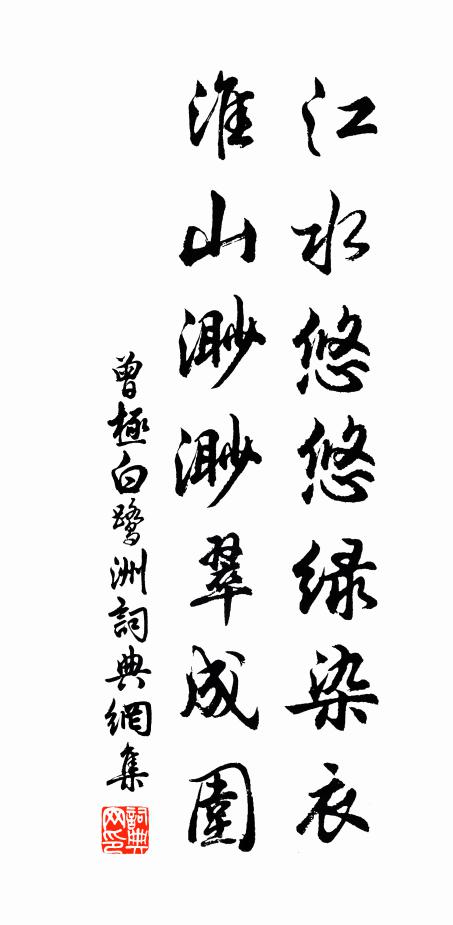 江水悠悠绿染衣
淮山渺渺翠成围
曾極白鹭洲詞典網集
詞典网印